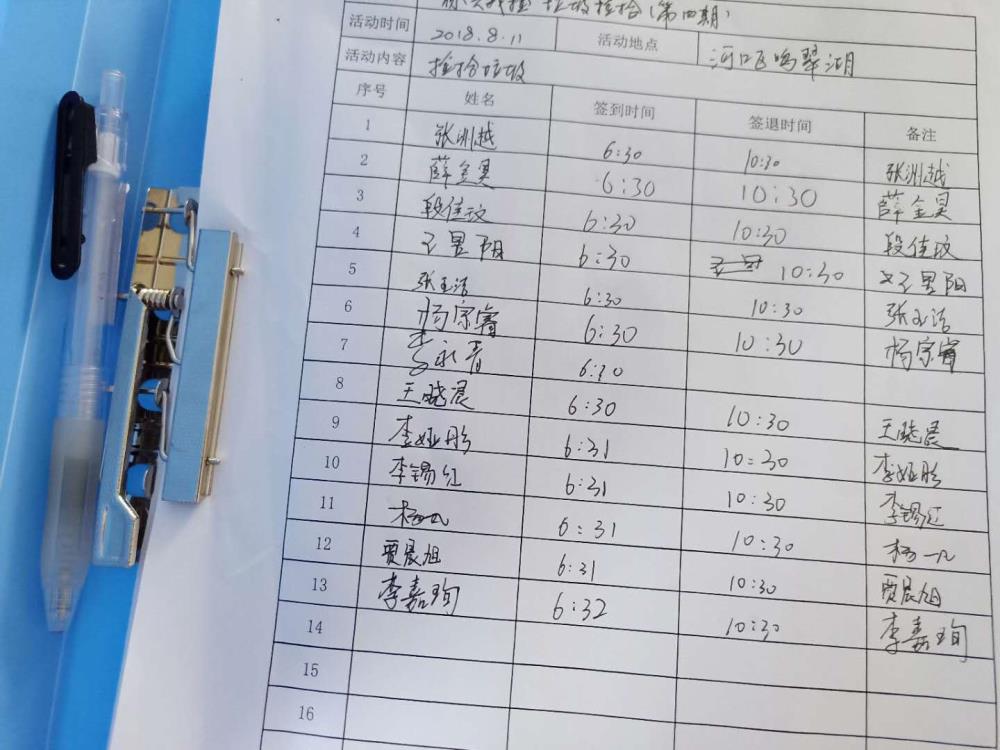 垃圾捡拾(第四期)
活动时间 2018.8.11 活动地点 河口区鸣翠湖
活动内容 捡拾垃圾
序号 姓名 签到时间 签退时间 备注
1 张洲越 6:30 10:30 张洲越
2 薛金昊 6:30 10:30 薛金昊
3 段佳玟 6:30 10:30 段佳玟
4 王昱阳 6:30 10:30 王昱阳
5 张玉洁 6:30 10:30 张玉洁
6 杨宗睿 6:30 10:30 杨宗睿
7 李永青 6:30
8 王晓晨 6:30 10:30 王晓晨
9 李娅彤 6:31 10:30 李娅彤
10 李锡红 6:31 10:30 李锡红
11 杨一凡 6:31 10:30 杨一凡
12 贾晨旭 6:31 10:30 贾晨旭
13 李嘉珣 6:32 10:30 李嘉珣
14
15
16